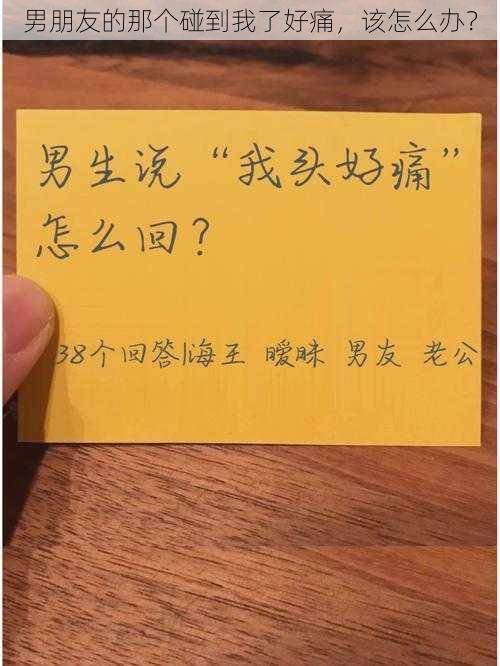 男朋友的那个碰到我了好痛，该怎么办？
男生说“我头好痛”
怎么回？
38个回答|海王 暧昧 男友 老公